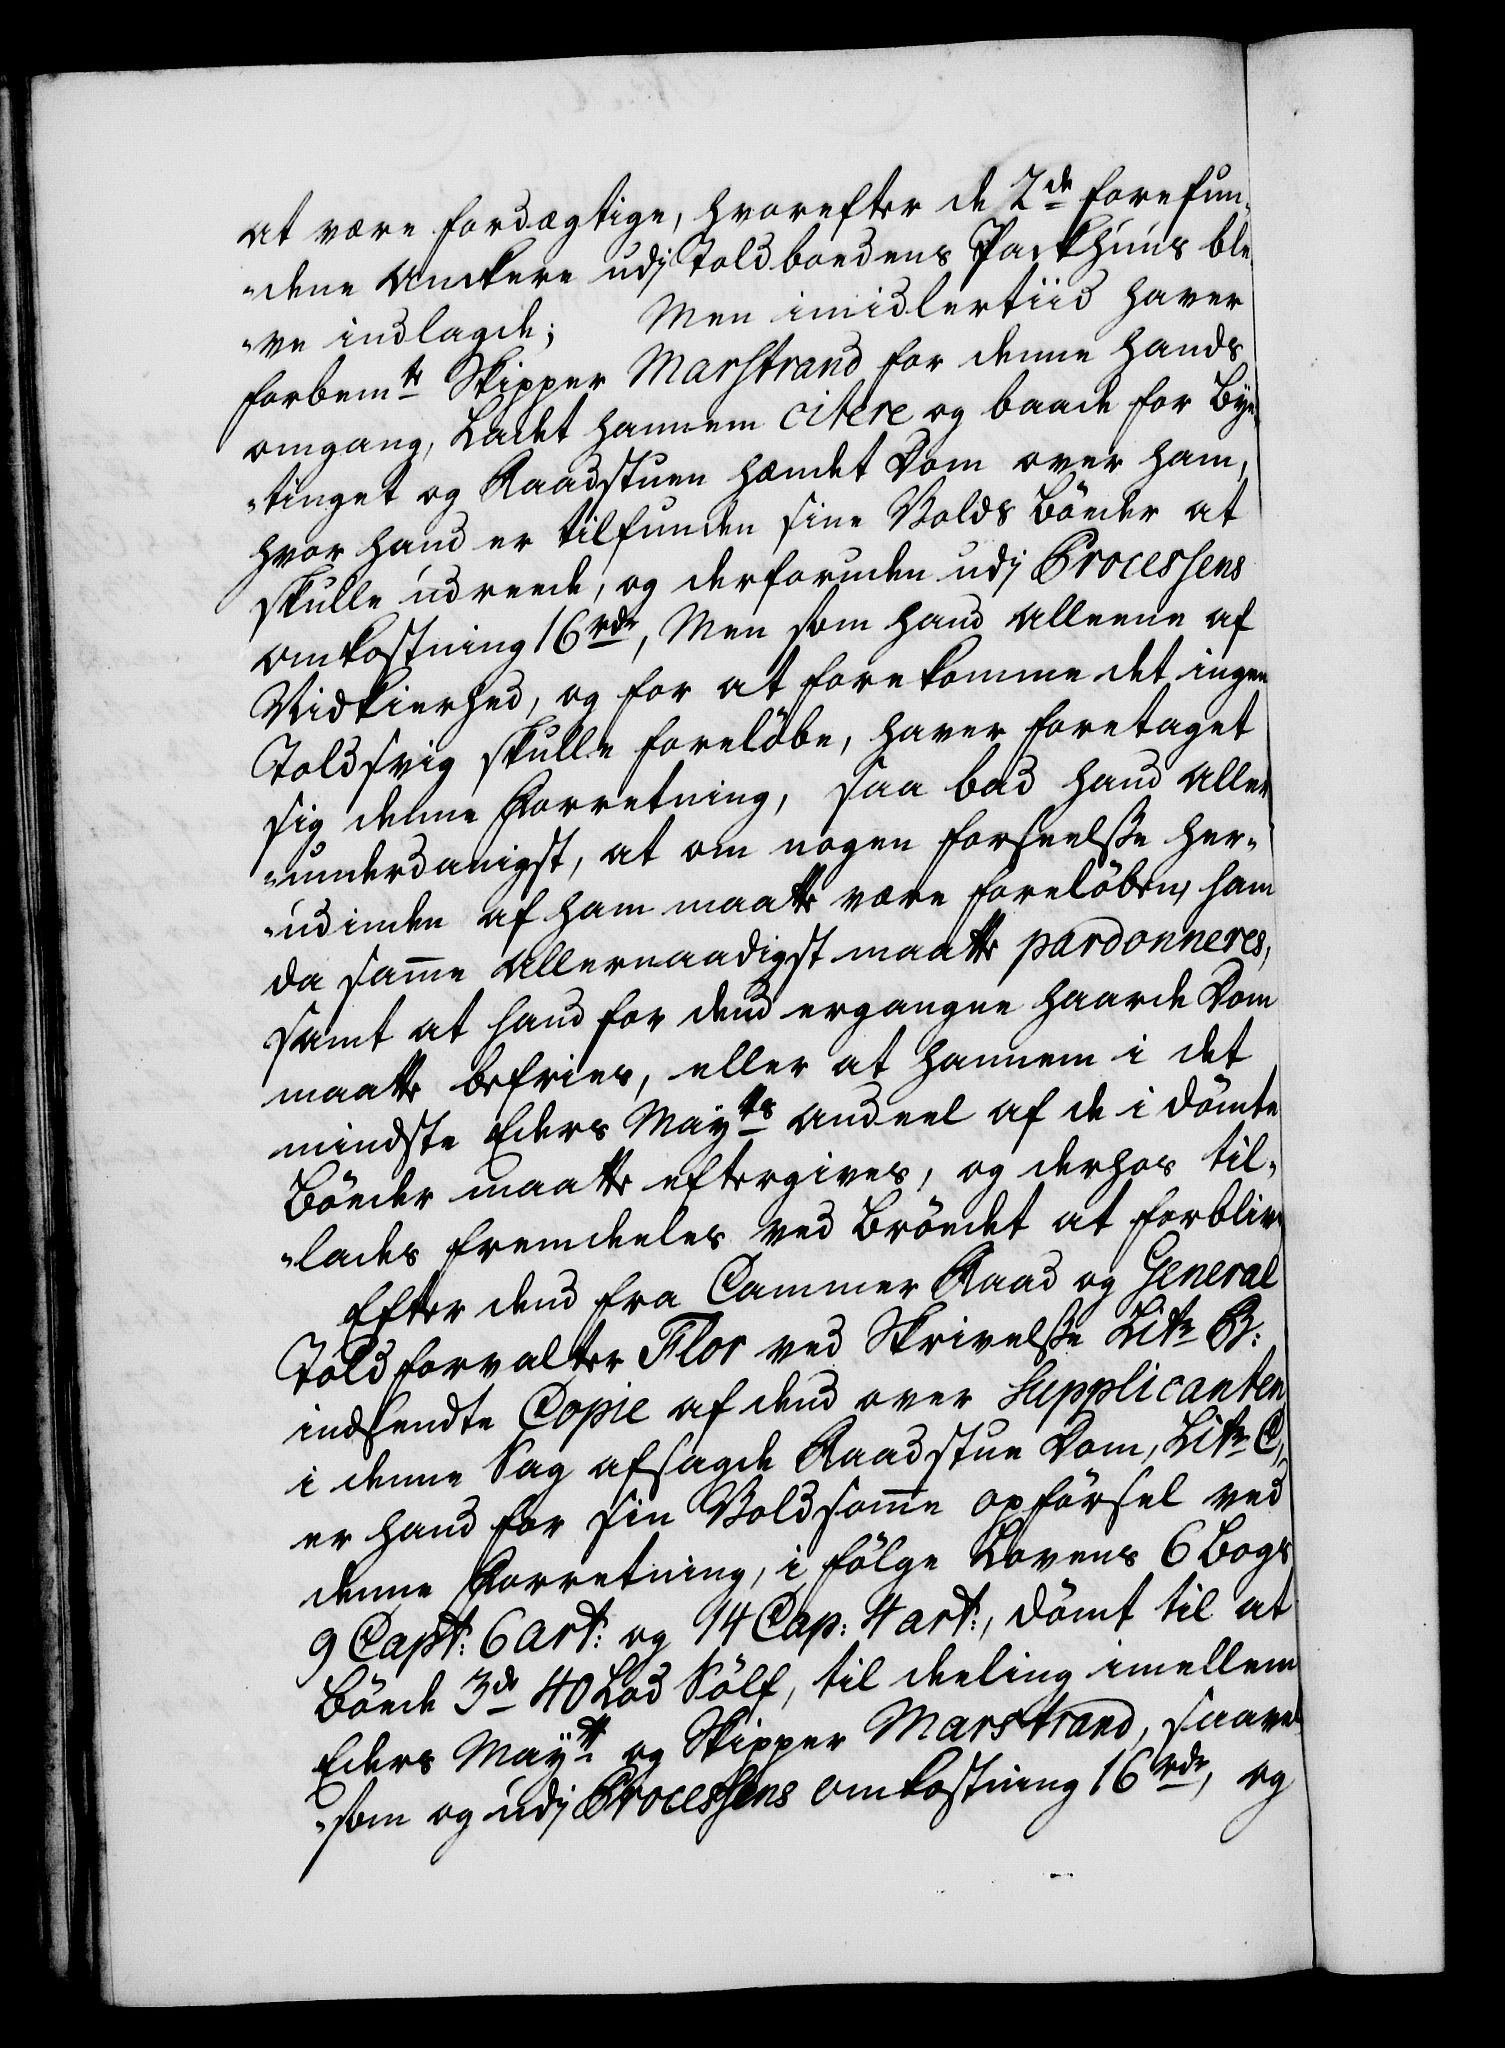 at være fordægtige, hvorefter de 2de forefun,
„dene Anckere udj Toldboedens Packhúús ble
„ve indlagde; Men imidlertiid haver
forbemte Skipper Marstrand for denne hands
omgang, Ladet hannem citere og baade for Bye
„tinget og Raadstuen hændet Dom over ham,
hvor hand er tilfunden sine Volds Bøeder at
skulle údreede, og derforuden udj Processens
omkostning 16 rdr, Men som hand alleene af
Nidkierhed, og for at forekomme det ingen
Toldsvig skulle foreløbe, haver foretaget
sig denne Forretning, saa bad hand aller
„underdanigst, at om nogen forseelsse her„
„údinden af ham maatte være foreløben, ham
da samme allernaadigst maatte pardonneres,
samt at hand for dend ergangne haarde Dom
maatte befries, eller at hannem i det
mindste Eders Mayts andeel af de idømte
Bøeder maatte eftergives, og derhos til„
„lades fremdeeles ved Brøedet at forblive
Efter dend fra Cammer Raad og General
Toldforvalter Flor ved Skrivelsse Litr B:
indsendte Copie af dend over Supplicanten
i denne Sag afsagde Raadstue Dom, Litr C,
er hand for sin Voldsomme opførsel ved
denne Forretning, i følge Lovens 6 Bogs
9 Capt: 6 art: og 14 Cap: 4 art:, dømt til at
Bøede 3de 40 Lod Sølf, til deeling imellem
Eders Mayt: og Skipper Marstrand, saavel
„som og údj Processens omkostning 16 rdr, og